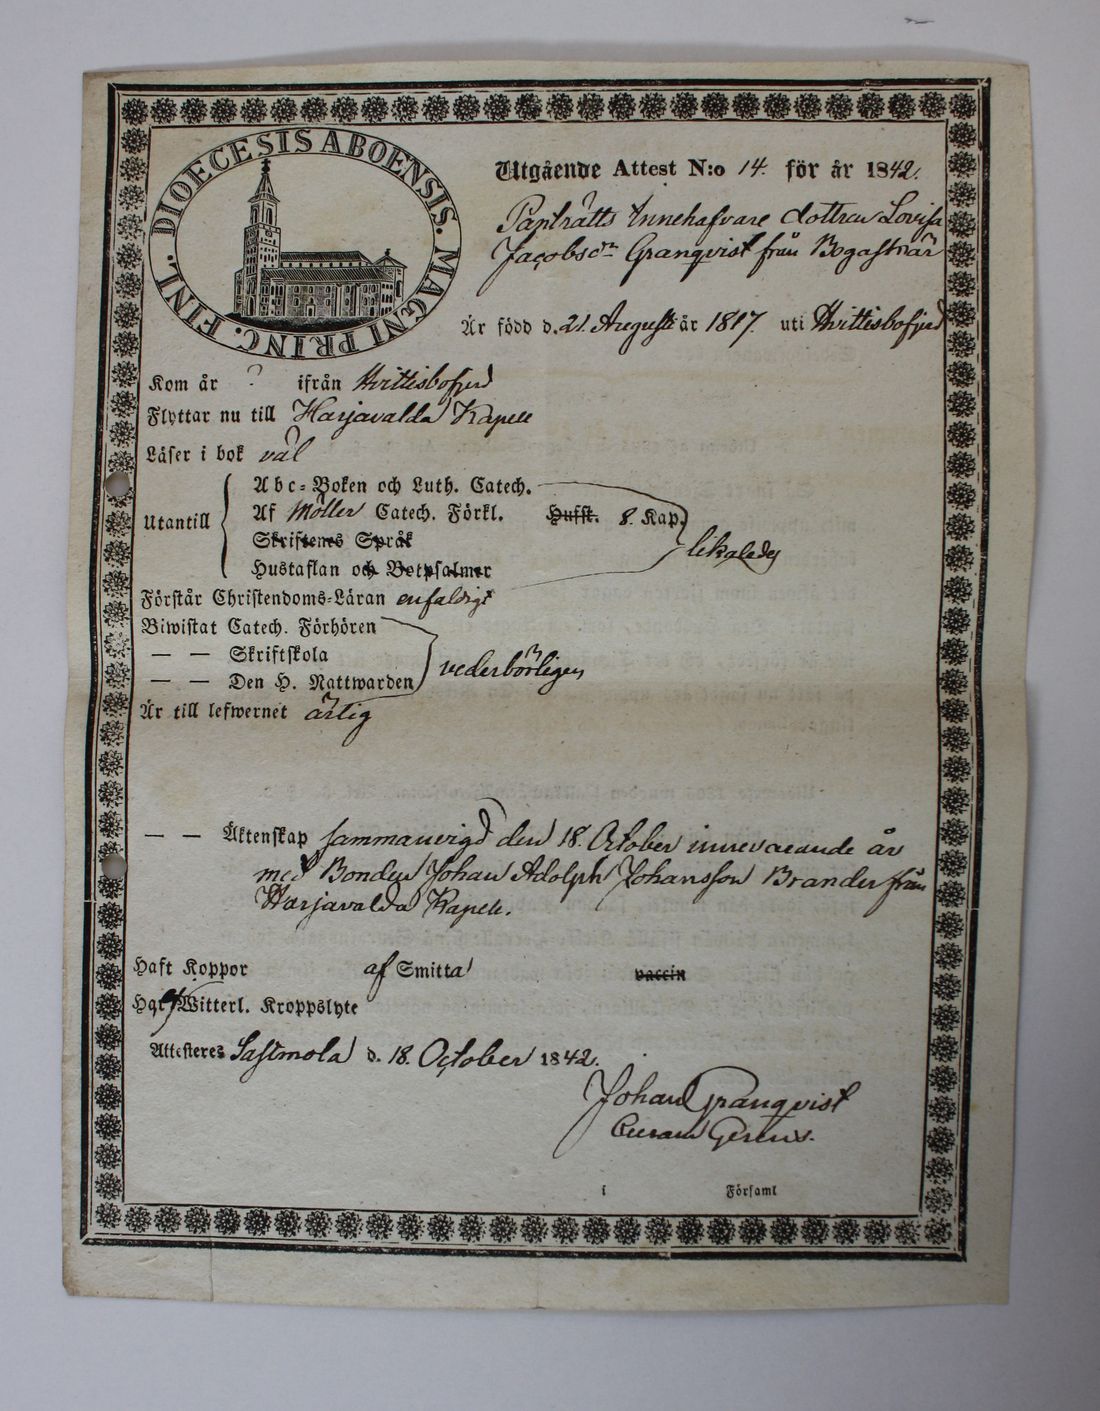 DIOECESIS ABOENSIS. MAGNI PRINC. FINL.
Utgående Attest N:o 14. för år 1842.
Panträtts Innehafvare dottren Lovisa
Jacobsdr Granqvist från Bogaskär
Är född d. 21. Augusti år 1817 uti Hvittisbofjerd
Kom år ? ifrån Hvittisbofjerd
Flyttar nu till Harjavalda Kapell
Läser i bok väl
Utantill
Abc-Boken och Luth. Catech.
Af Möller Catech. Förkl. Hufst. 8. Kap.
Skriftenes Språk
likaledes
Hustaflan och Botpsalmer
Förstår Christendoms-Läran enfaldigt
Biwistat Catech. Förhören
— — Skriftskola
vederbörligen
— — Den H. Nattwarden
Är till lefwernet ärlig
— — Äktenskap sammanvigd den 18. October innevarande år
med Bonden Johan Adolph Johansson Brander från
Harjavalda Kapell.
Haft Koppor af Smitta vaccin
Witterl. Kroppslyte
Attesteres Sastmola d. 18. October 1842.
Johan Granqvist
Curam Gerens.
i Församl